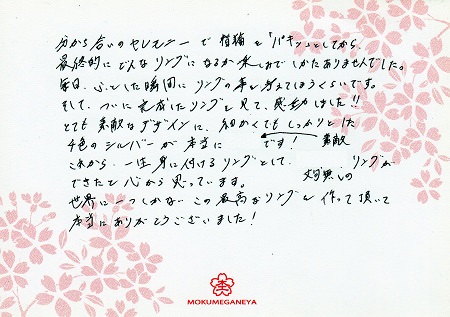 分かち合いのセレモニーで指輪を「パキッ」としてから、
最終的にどんなリングになるか楽しみでしかたありませんでした。
毎日、ふとした瞬間にリングの事を考えてしまうくらいです。
そして、ついに完成したリングを見て、感動しました!!
とても素敵なデザインに、細かくでもしっかりとした
4色のシルバーが本当に素敵です!
これから、一生身に付けるリングとして、文句無しのリングが
できたと心から思っています。
世界に一つしかないこの最高なリングを作って頂いて
本当にありがとうございました!
MOKUMEGANEYA